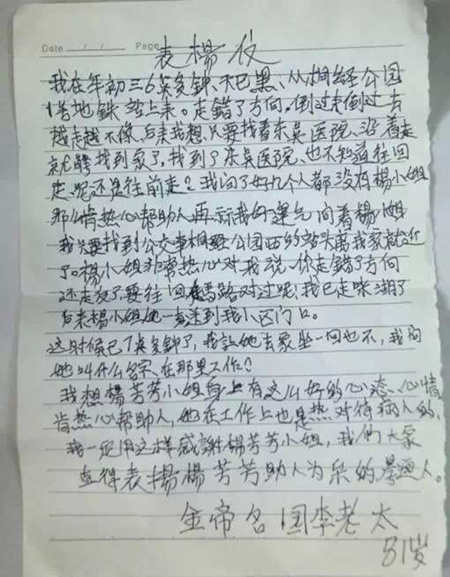 Date / / Page
表楊仪
我在年初三6点多钟、天已黑、从桐泾公园
地铁站上来。走错了方向。倒过走倒过去
越走越不像、后来我想、只要找着东吴医院、沿着走
就能找到家了。找到了东吴医院、也不知道往回
走呢还是往前走?我问了好几个人都没有楊小姐
那么情热心帮助人再示我好運气问着楊小姐
我只要找到公交車桐泾公园西的站头离我家就近
了。楊小姐非常热心对我说、你走错了方向
还走反了要往回走馬路对过呢、我已走咪湖了
后来楊小姐她一直送到我小区门口。
这时候已7点多钟了,我說她去家坐一回也不,我问
她叫什么名字、在那里工作?
我想楊芳芳小姐身上有这么好的心态、心情
肯热心帮助人,他在工作上也是热对待病人的,
我一定用这样感謝楊芳芳小姐,我们大家
直得表揚楊芳芳助人为乐的善良人。
金帝名国李老太
81岁